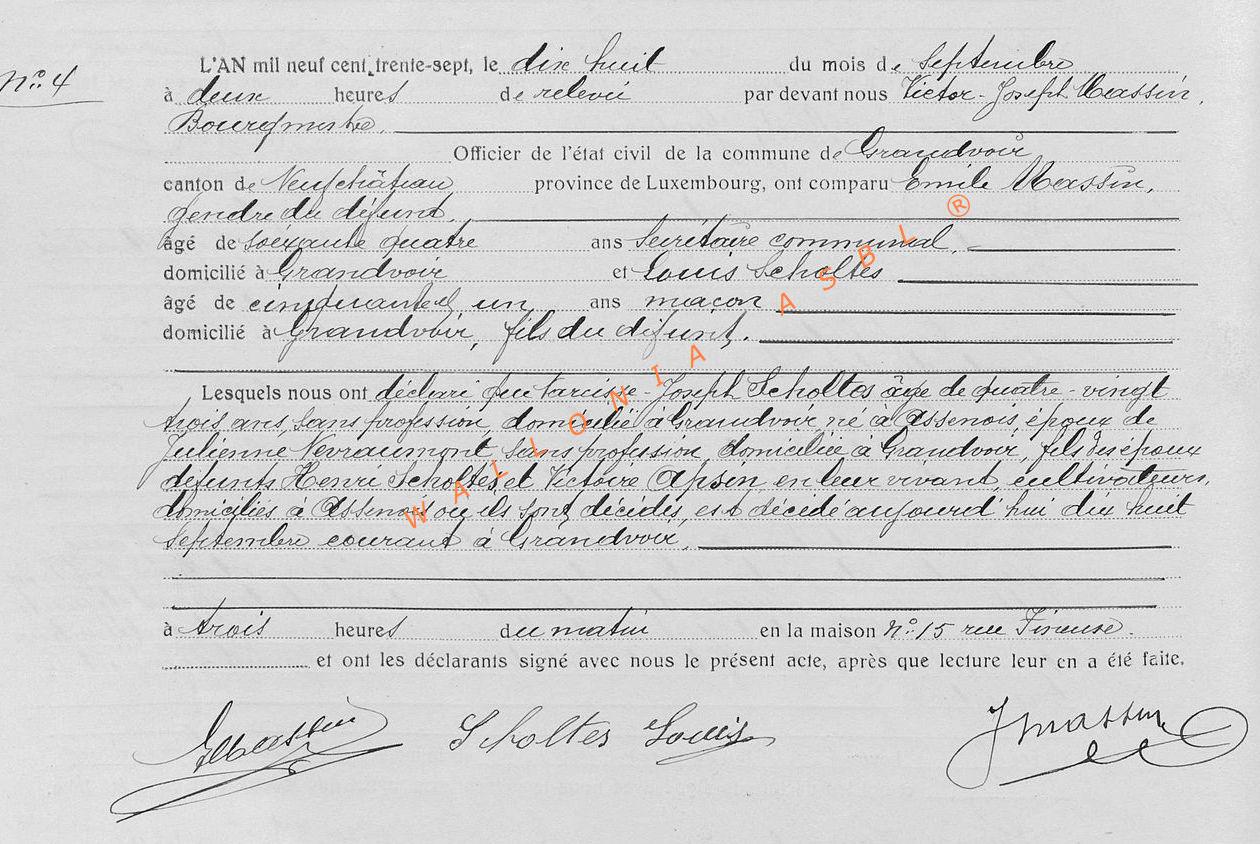 N° 4
L'AN mil neuf cent trente-sept, le dix huit du mois de Septembre
à deux heures de relevée par devant nous Victor-Joseph Massin,
Bourgmestre
Officier de l'état civil de la commune de Grandvoir
canton de Neufchâteau province de Luxembourg, ont comparu Emile Massin,
gendre du défunt,
âgé de soixante quatre ans Secrétaire communal,
domicilié à Grandvoir et Louis Scholtès
âgé de cinquante et un ans maçon
domicilié à Grandvoir, fils du défunt.
Lesquels nous ont déclaré que Tarcisse-Joseph Scholtès âgé de quatre-vingt
trois ans, sans profession, domicilié à Grandvoir, né à Assenois, époux de
Julienne Nevraumont sans profession, domiciliée à Grandvoir, fils des époux
défunts Henri Scholtès et Victoire Apsin, en leur vivant cultivateurs,
domiciliés à Assenois où ils sont décédés, est décédé aujourd'hui dix huit
Septembre courant à Grandvoir,
à trois heures du matin en la maison N° 15 rue
et ont les déclarants signé avec nous le présent acte, après que lecture leur en a été faite.
EMassin Scholtes Louis JMassin
WALLONIA ASBL ®